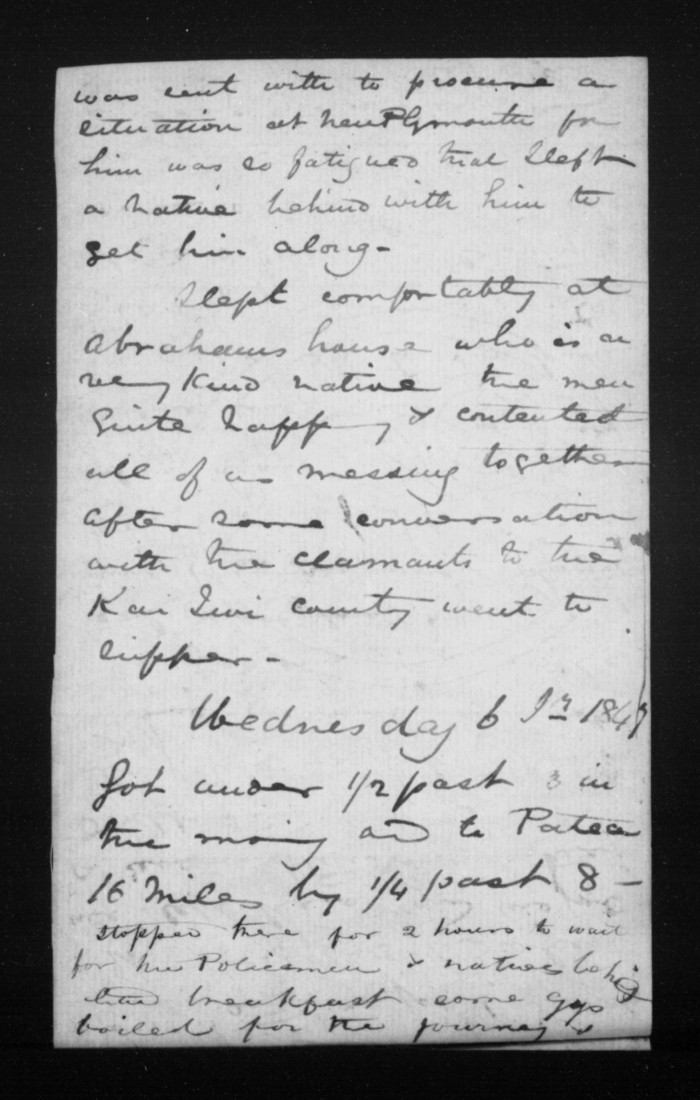 was sent with to procure a
situation at New Plymouth for
him was so fatigued that I left
a native behind with him to
get him along -
Slept comfortably at
Abrahams house who is a
very kind native the men
quite happy & contented
all of us messing together
after some conversation
with the claimants to the
Kai Iwi county went to
supper -
Wednesday 6 Jr 184
Got under 1/2 past 3 in
the morning and to Patea
16 miles by 1/4 past 8 -
stopped there for 2 hours to wait
for the Policemen & natives behind
had breakfast some eggs
boiled for the journey &